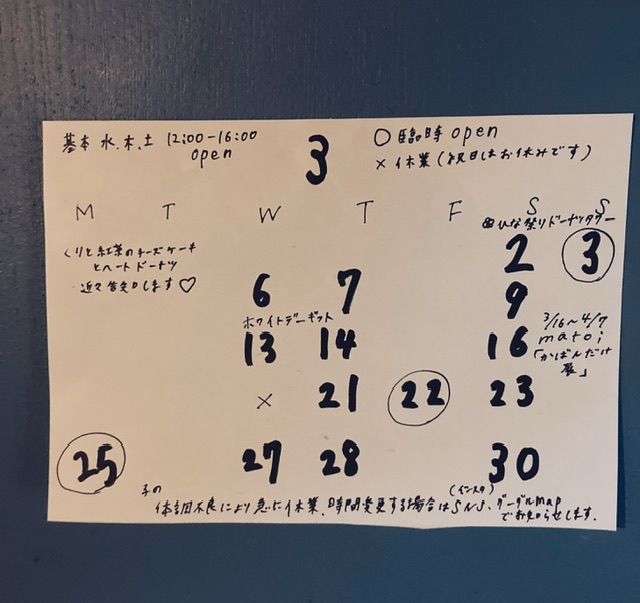 基本 水.木.土 12:00-16:00
open
3
○臨時open
×休業(祝日はお休みです)
M T W T F S S
ひな祭りドーナツタワー
くりと紅茶のチーズケーキ
とハートドーナツ
近々告知します♡
2 3
6 7 9
ホワイトデーギフト
13 14 16
3/16~4/7
matoi
「かばんだけ
展」
× 21 22 23
25 27 28 30
子の
体調不良により急に休業、時間変更する場合はSNS、グーグルmap
(インスタ)
でお知らせします.